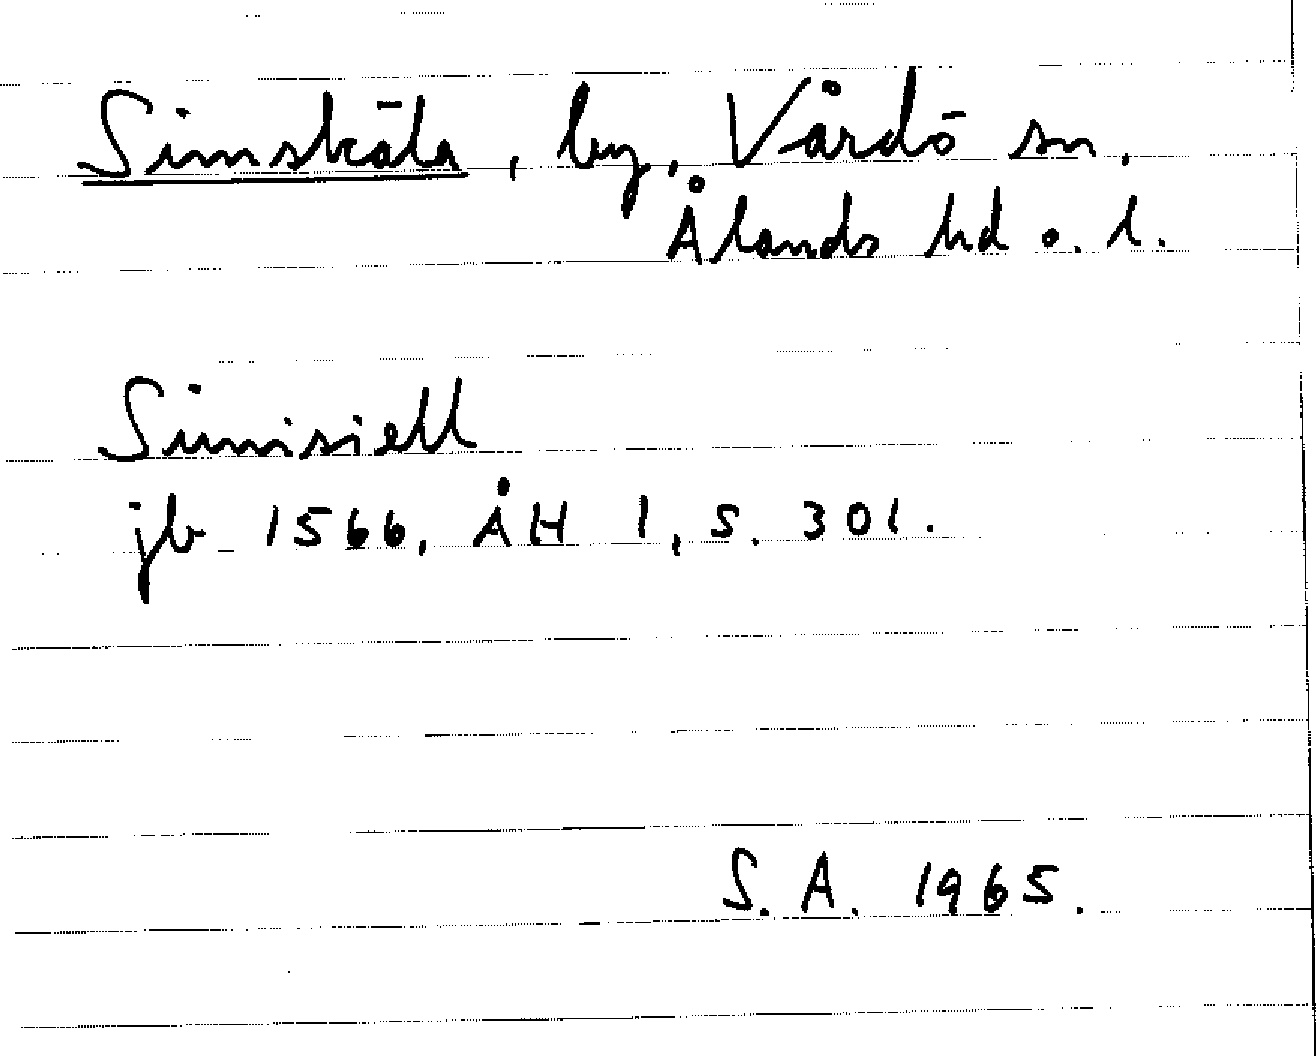 Simskäla, by, Vårdö sn.
Ålands hd o. l.
Simisiell
jb 1566, ÅH 1, s. 301.
S. A. 1965.